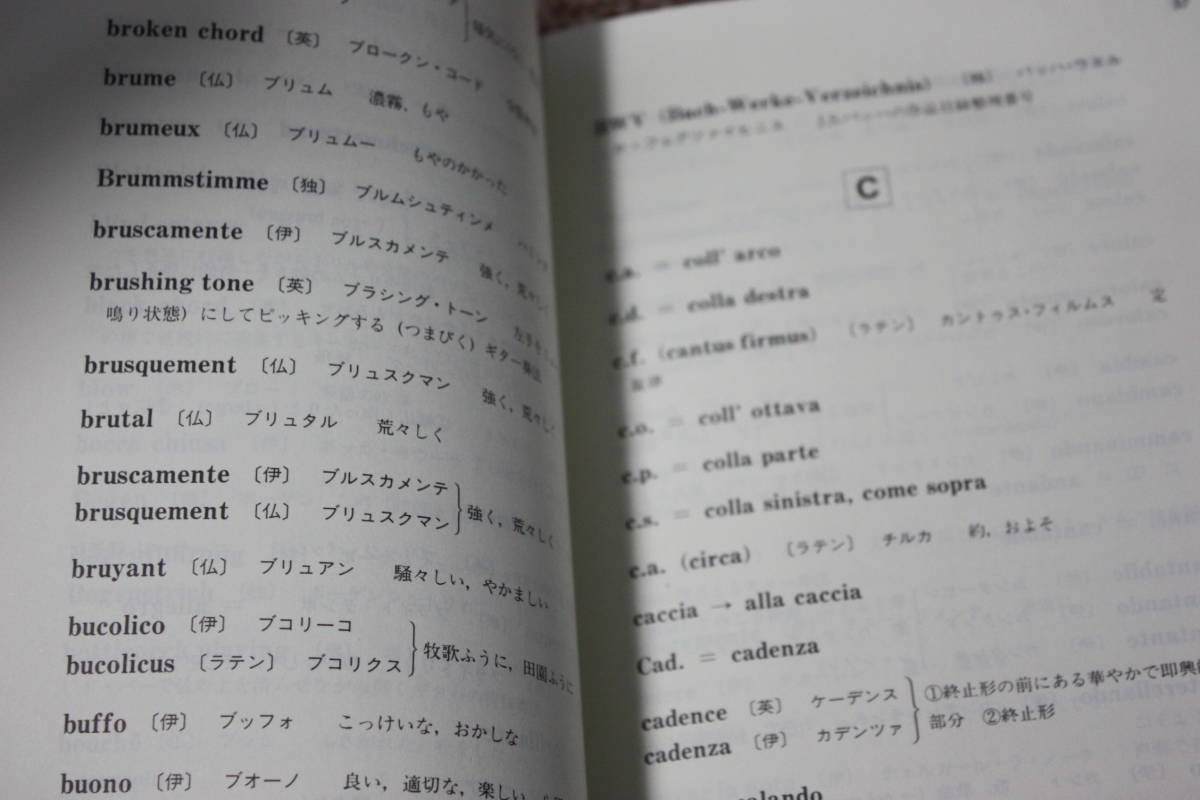 broken chord 〔英〕 ブロークン・コード
brume 〔仏〕 ブリュム 濃霧、もや
brumeux 〔仏〕 ブリュムー もやのかかった
Brummstimme 〔独〕 ブルムシュティンメ
bruscamente 〔伊〕 ブルスカメンテ 強く，荒々しく
brushing tone 〔英〕 ブラシング・トーン
鳴り状態）にしてピッキングする（つまびく）ギター奏法
brusquement 〔仏〕 ブリュスクマン 強く，荒々しく
brutal 〔仏〕 ブリュタル 荒々しく
bruscamente 〔伊〕 ブルスカメンテ
brusquement 〔仏〕 ブリュスクマン
強く，荒々しく
bruyant 〔仏〕 ブリュアン 騒々しい，やかましい
bucolico 〔伊〕 ブコリーコ
bucolicus 〔ラテン〕 ブコリクス
牧歌ふうに，田園ふうに
buffo 〔伊〕 ブッフォ こっけいな，おかしな
buono 〔伊〕 ブオーノ 良い，適切な，楽しい
(Bach-Werke-Verzeichnis)
C
c.a. = coll' arco
c.d. = colla destra
c.f. (cantus firmus) 〔ラテン〕 カントゥス・フィルムス 定
旋律
c.o. = coll' ottava
c.p. = colla parte
c.s. = colla sinistra, come sopra
c.a. (circa) 〔ラテン〕 チルカ 約，およそ
caccia → alla caccia
Cad. = cadenza
cadence 〔英〕 ケーデンス
cadenza 〔伊〕 カデンツァ
①終止形の前にある華やかで即興
部分 ②終止形